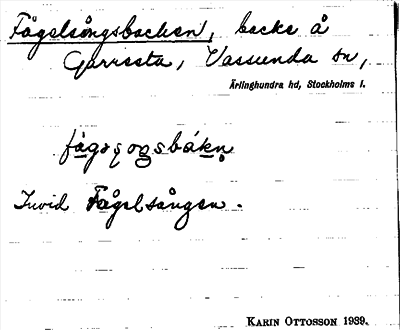 Fågelsångsbacken, backe å
Garresta, Vassunda sn,
Ärlinghundra hd, Stockholms l.
Invid Fågelsången.
KARIN OTTOSSON 1939.